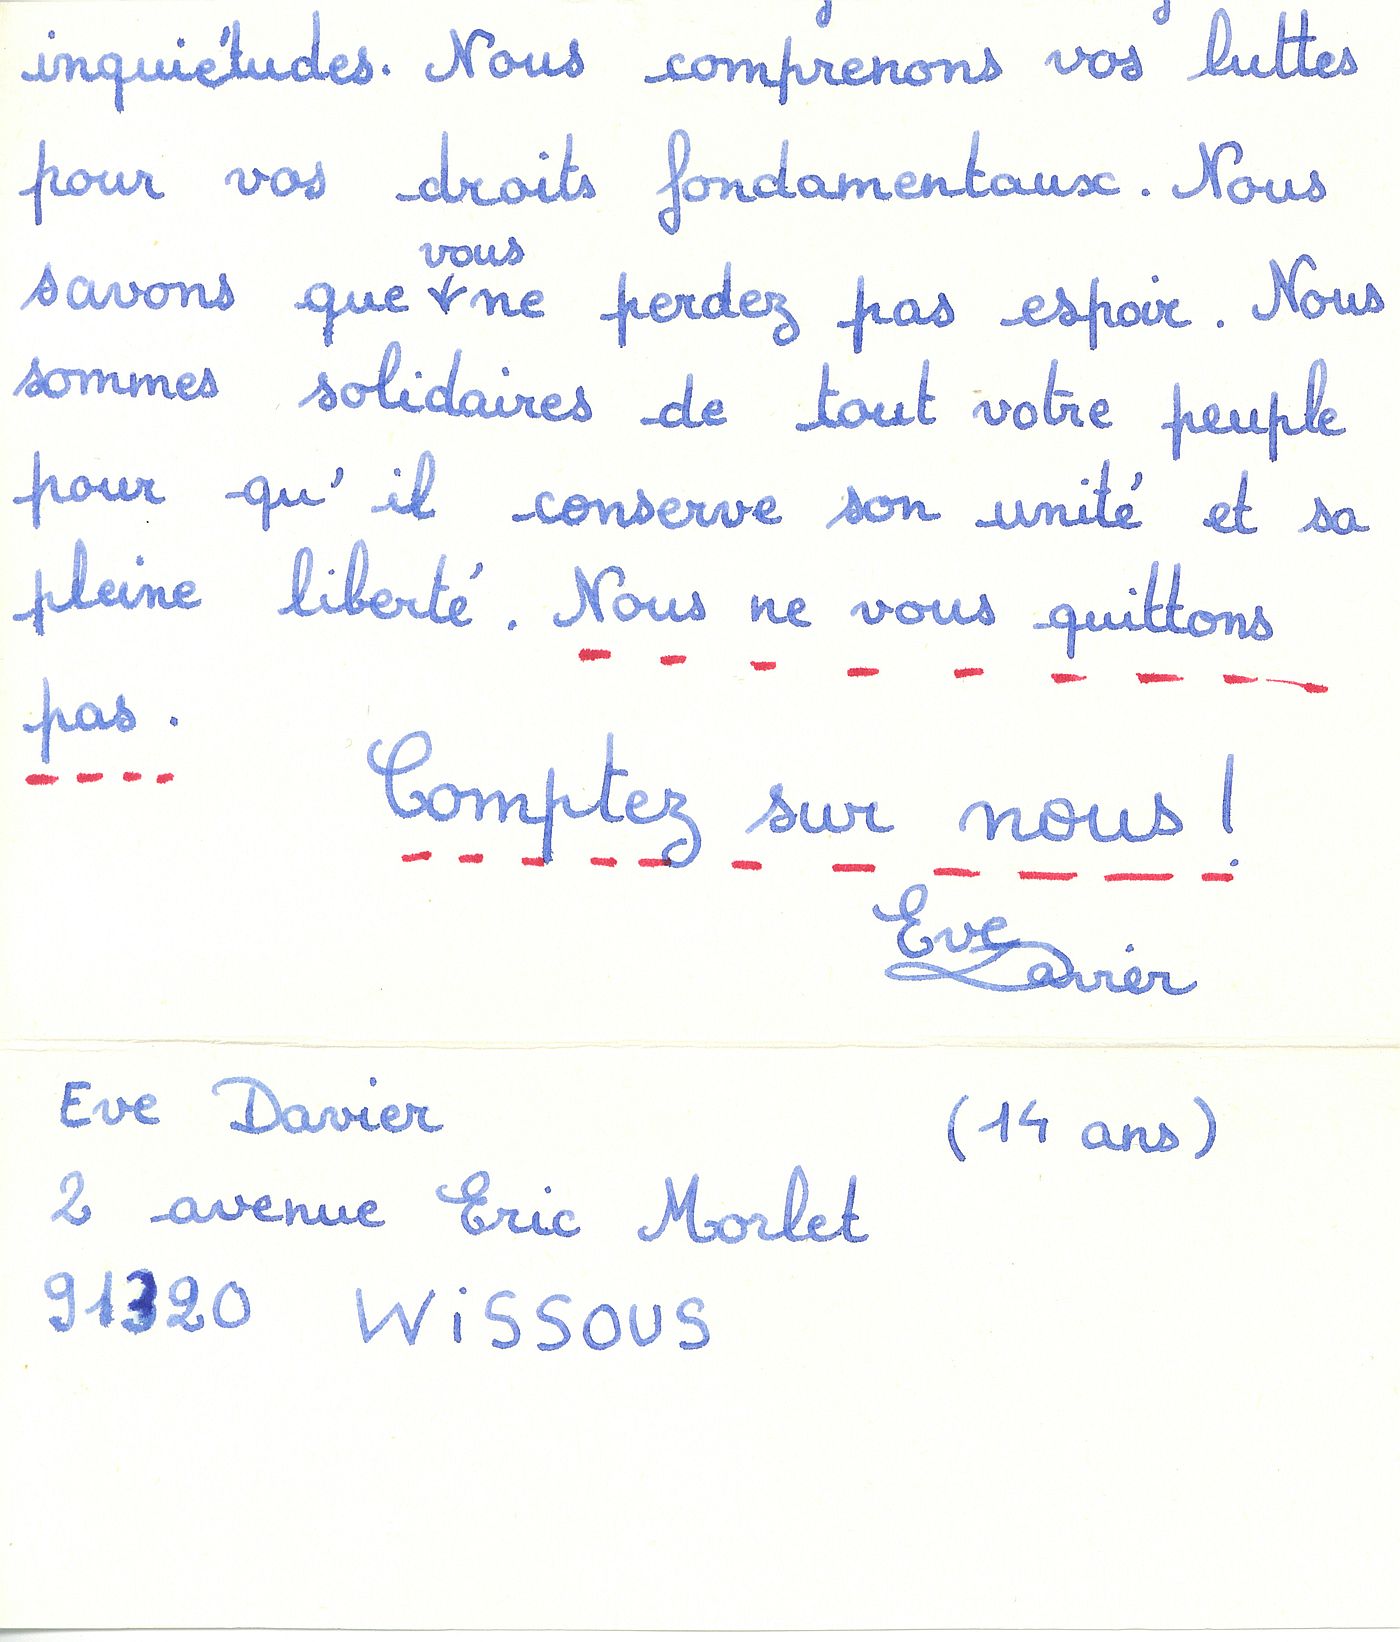 inquiétudes. Nous comprenons vos luttes
pour vos droits fondamentaux. Nous
vous
savons que ne perdez pas espoir. Nous
sommes solidaires de tout votre peuple
pour qu'il conserve son unité et sa
pleine liberté. Nous ne vous quittons
pas.
Comptez sur nous !
Eve
Davier
Eve Davier (14 ans)
2 avenue Eric Morlet
91320 WiSSOUS